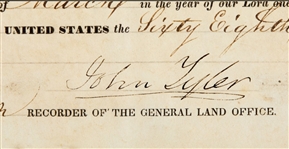 of March in the year of our Lord one
UNITED STATES the Sixty Eighth
John Tyler
RECORDER OF THE GENERAL LAND OFFICE.